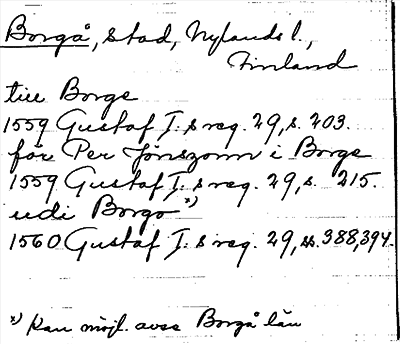 Borgå, stad, Nylands l.,
Finland
till Borge
1559 Gustaf I:s reg. 29, s. 203.
för Per Jönszonn i Borge
1559 Gustaf I:s reg. 29, s. 215.
udi Borgo x)
1560 Gustaf I:s reg. 29, ss. 388, 394.
x) Kan möjl. avse Borgå län